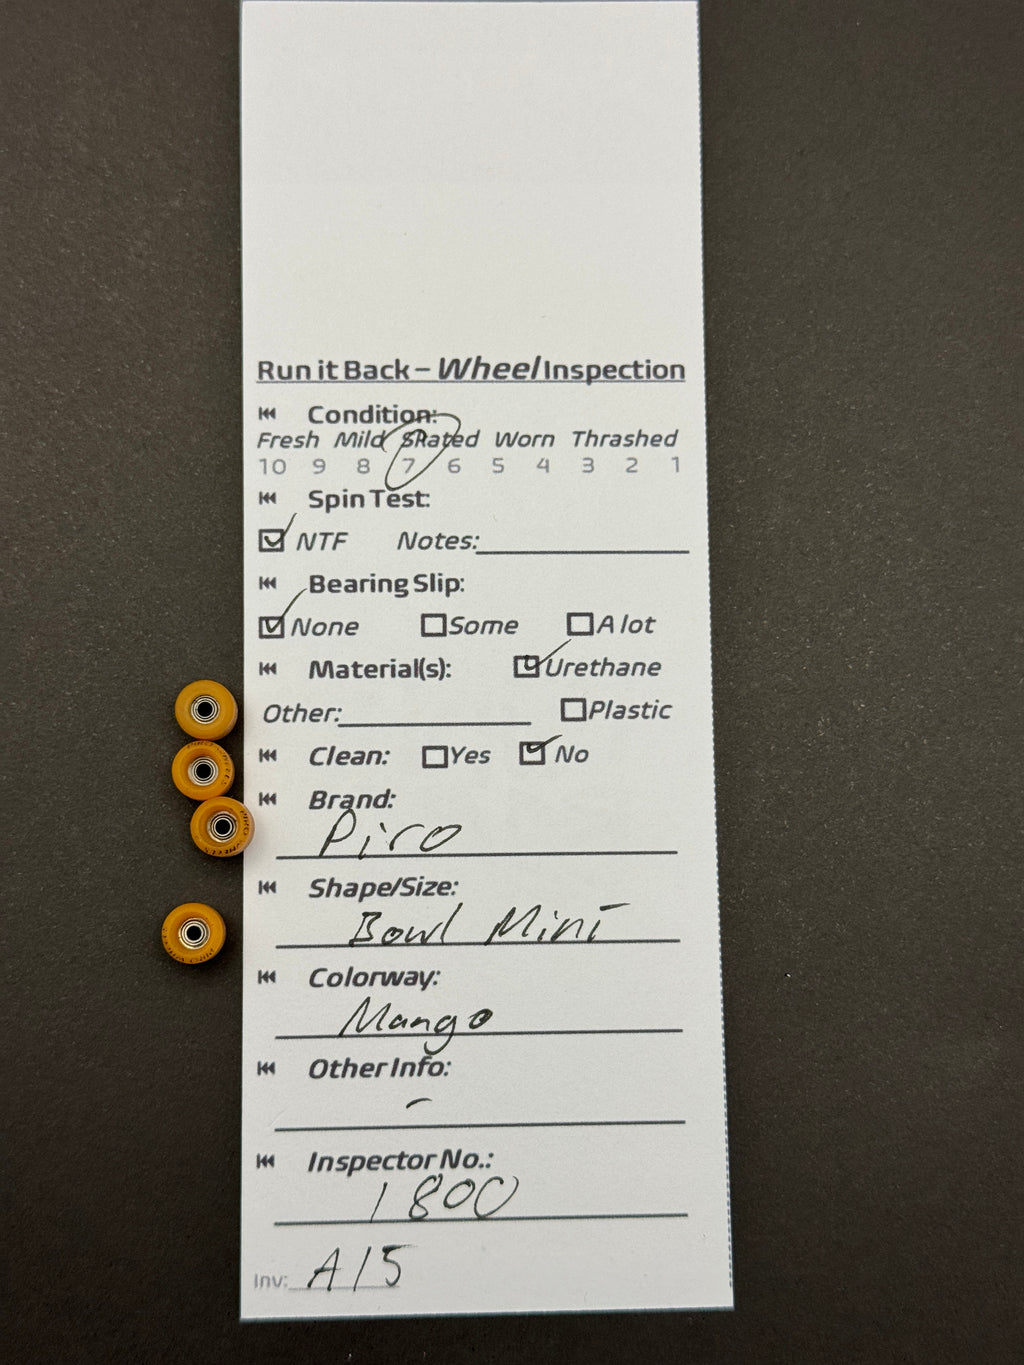 Run it Back – Wheel Inspection
Condition:
Fresh Mild Skated Worn Thrashed
10 9 8 7 6 5 4 3 2 1
Spin Test:
NTF Notes:
Bearing Slip:
None Some A lot
Material(s): Urethane
Other: Plastic
Clean: Yes No
Brand:
Piro
Shape/Size:
Bowl Mini
Colorway:
Mango
Other Info:
-
Inspector No.:
1800
Inv: A15
PIRO WHEELS
PIRO WHEELS
PIRO WHEELS